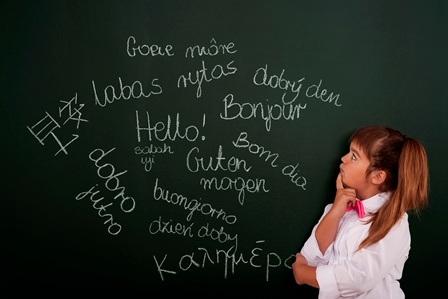 Goeie môre
labas rytas
dobrý den
Bonjour
Hello!
sabah
iyi
Guten
morgen
Bom dia
dobro
jutro
buongiorno
dzień doby
καλημέρα